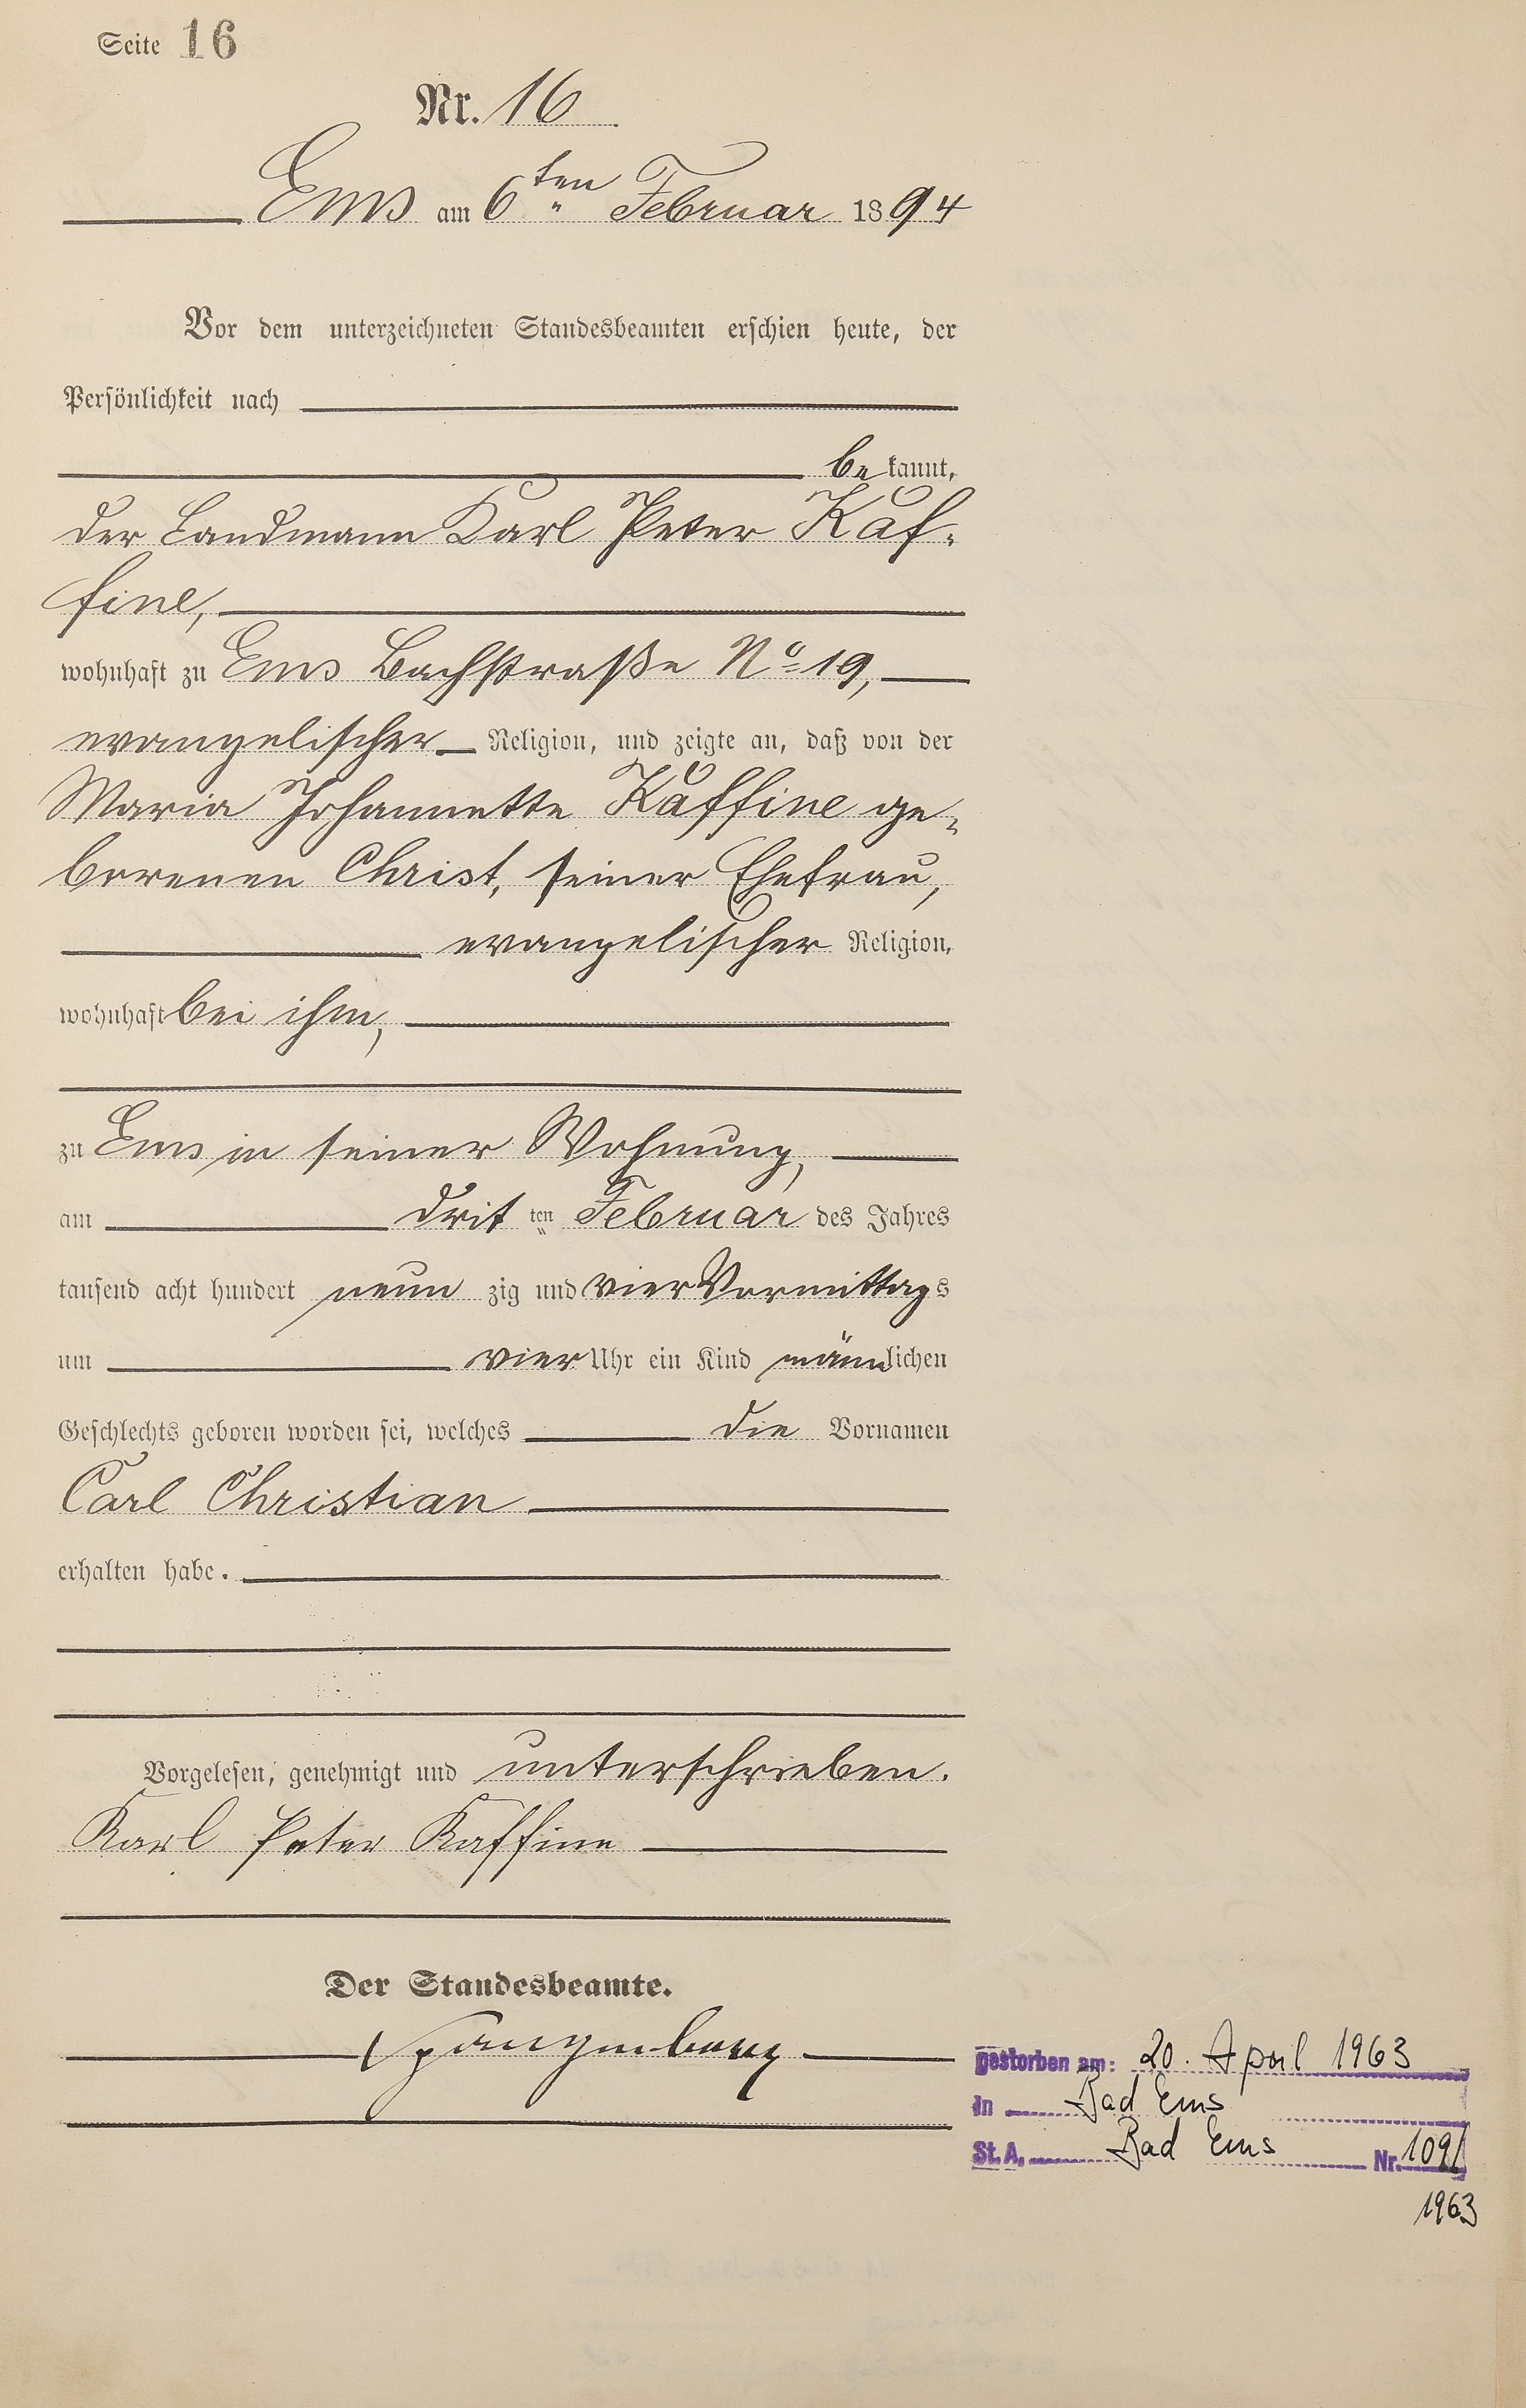 Seite 16
Nr. 16
Ems am 6ten Februar 1894
Vor dem unterzeichneten Standesbeamten erschien heute, der
Persönlichkeit nach
bekannt,
der Landmann Karl Peter Kaf-
fine,
wohnhaft zu Ems Bachstraße No 19,
evangelischer Religion, und zeigte an, daß von der
Maria Johannette Kaffine ge-
borenen Christ, seiner Ehefrau,
evangelischer Religion,
wohnhaft bei ihm,
zu Ems in seiner Wohnung,
am dritten Februar des Jahres
tausend acht hundert neunzig und vier Vormittags
um vier Uhr ein Kind männlichen
Geschlechts geboren worden sei, welches die Vornamen
Carl Christian
erhalten habe.
Vorgelesen, genehmigt und unterschrieben.
Karl Peter Kaffine
Der Standesbeamte.
Spangenberg
gestorben am: 20. April 1963
in Bad Ems
St. A. Bad Ems Nr. 109/
1963